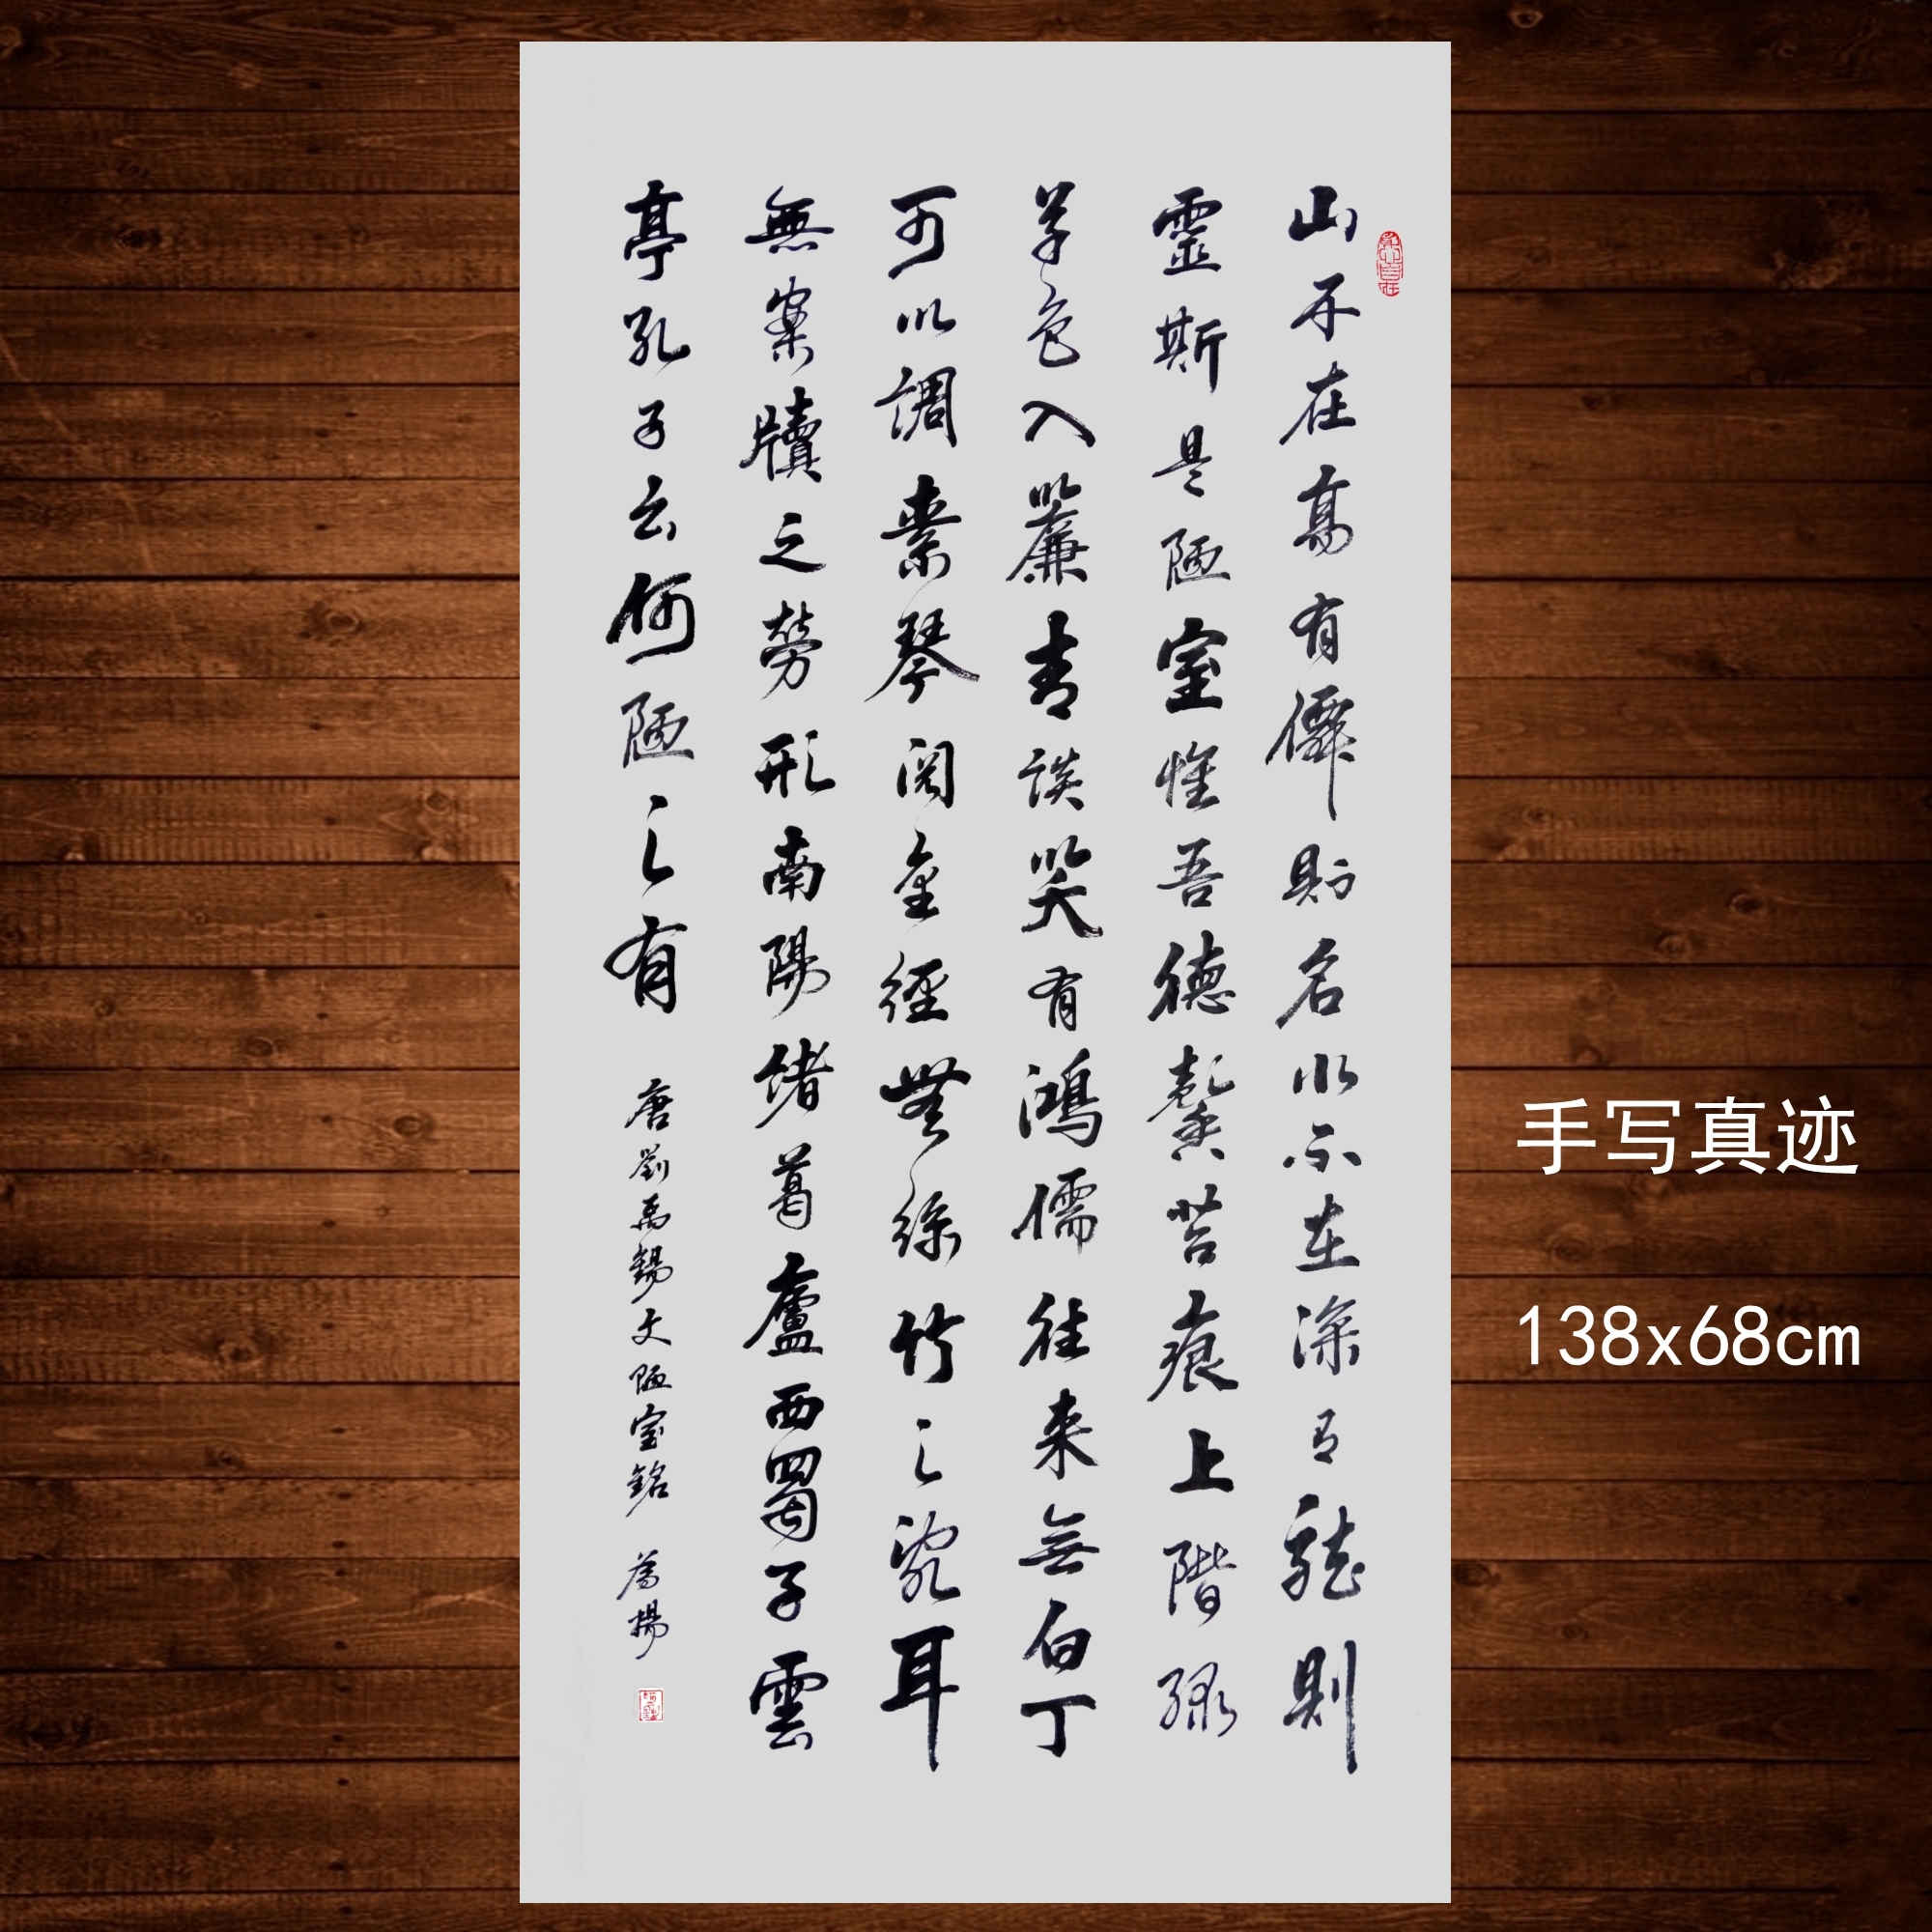 山不在高有僊則名水不在深有龍則
靈斯是陋室惟吾德馨苔痕上階緑
草色入簾青談笑有鴻儒往来無白丁
可以調素琴閲金經無絲竹之亂耳
無案牘之勞形南陽諸葛廬西蜀子雲
亭孔子云何陋之有 唐劉禹錫文陋室銘
手写真迹
138x68cm